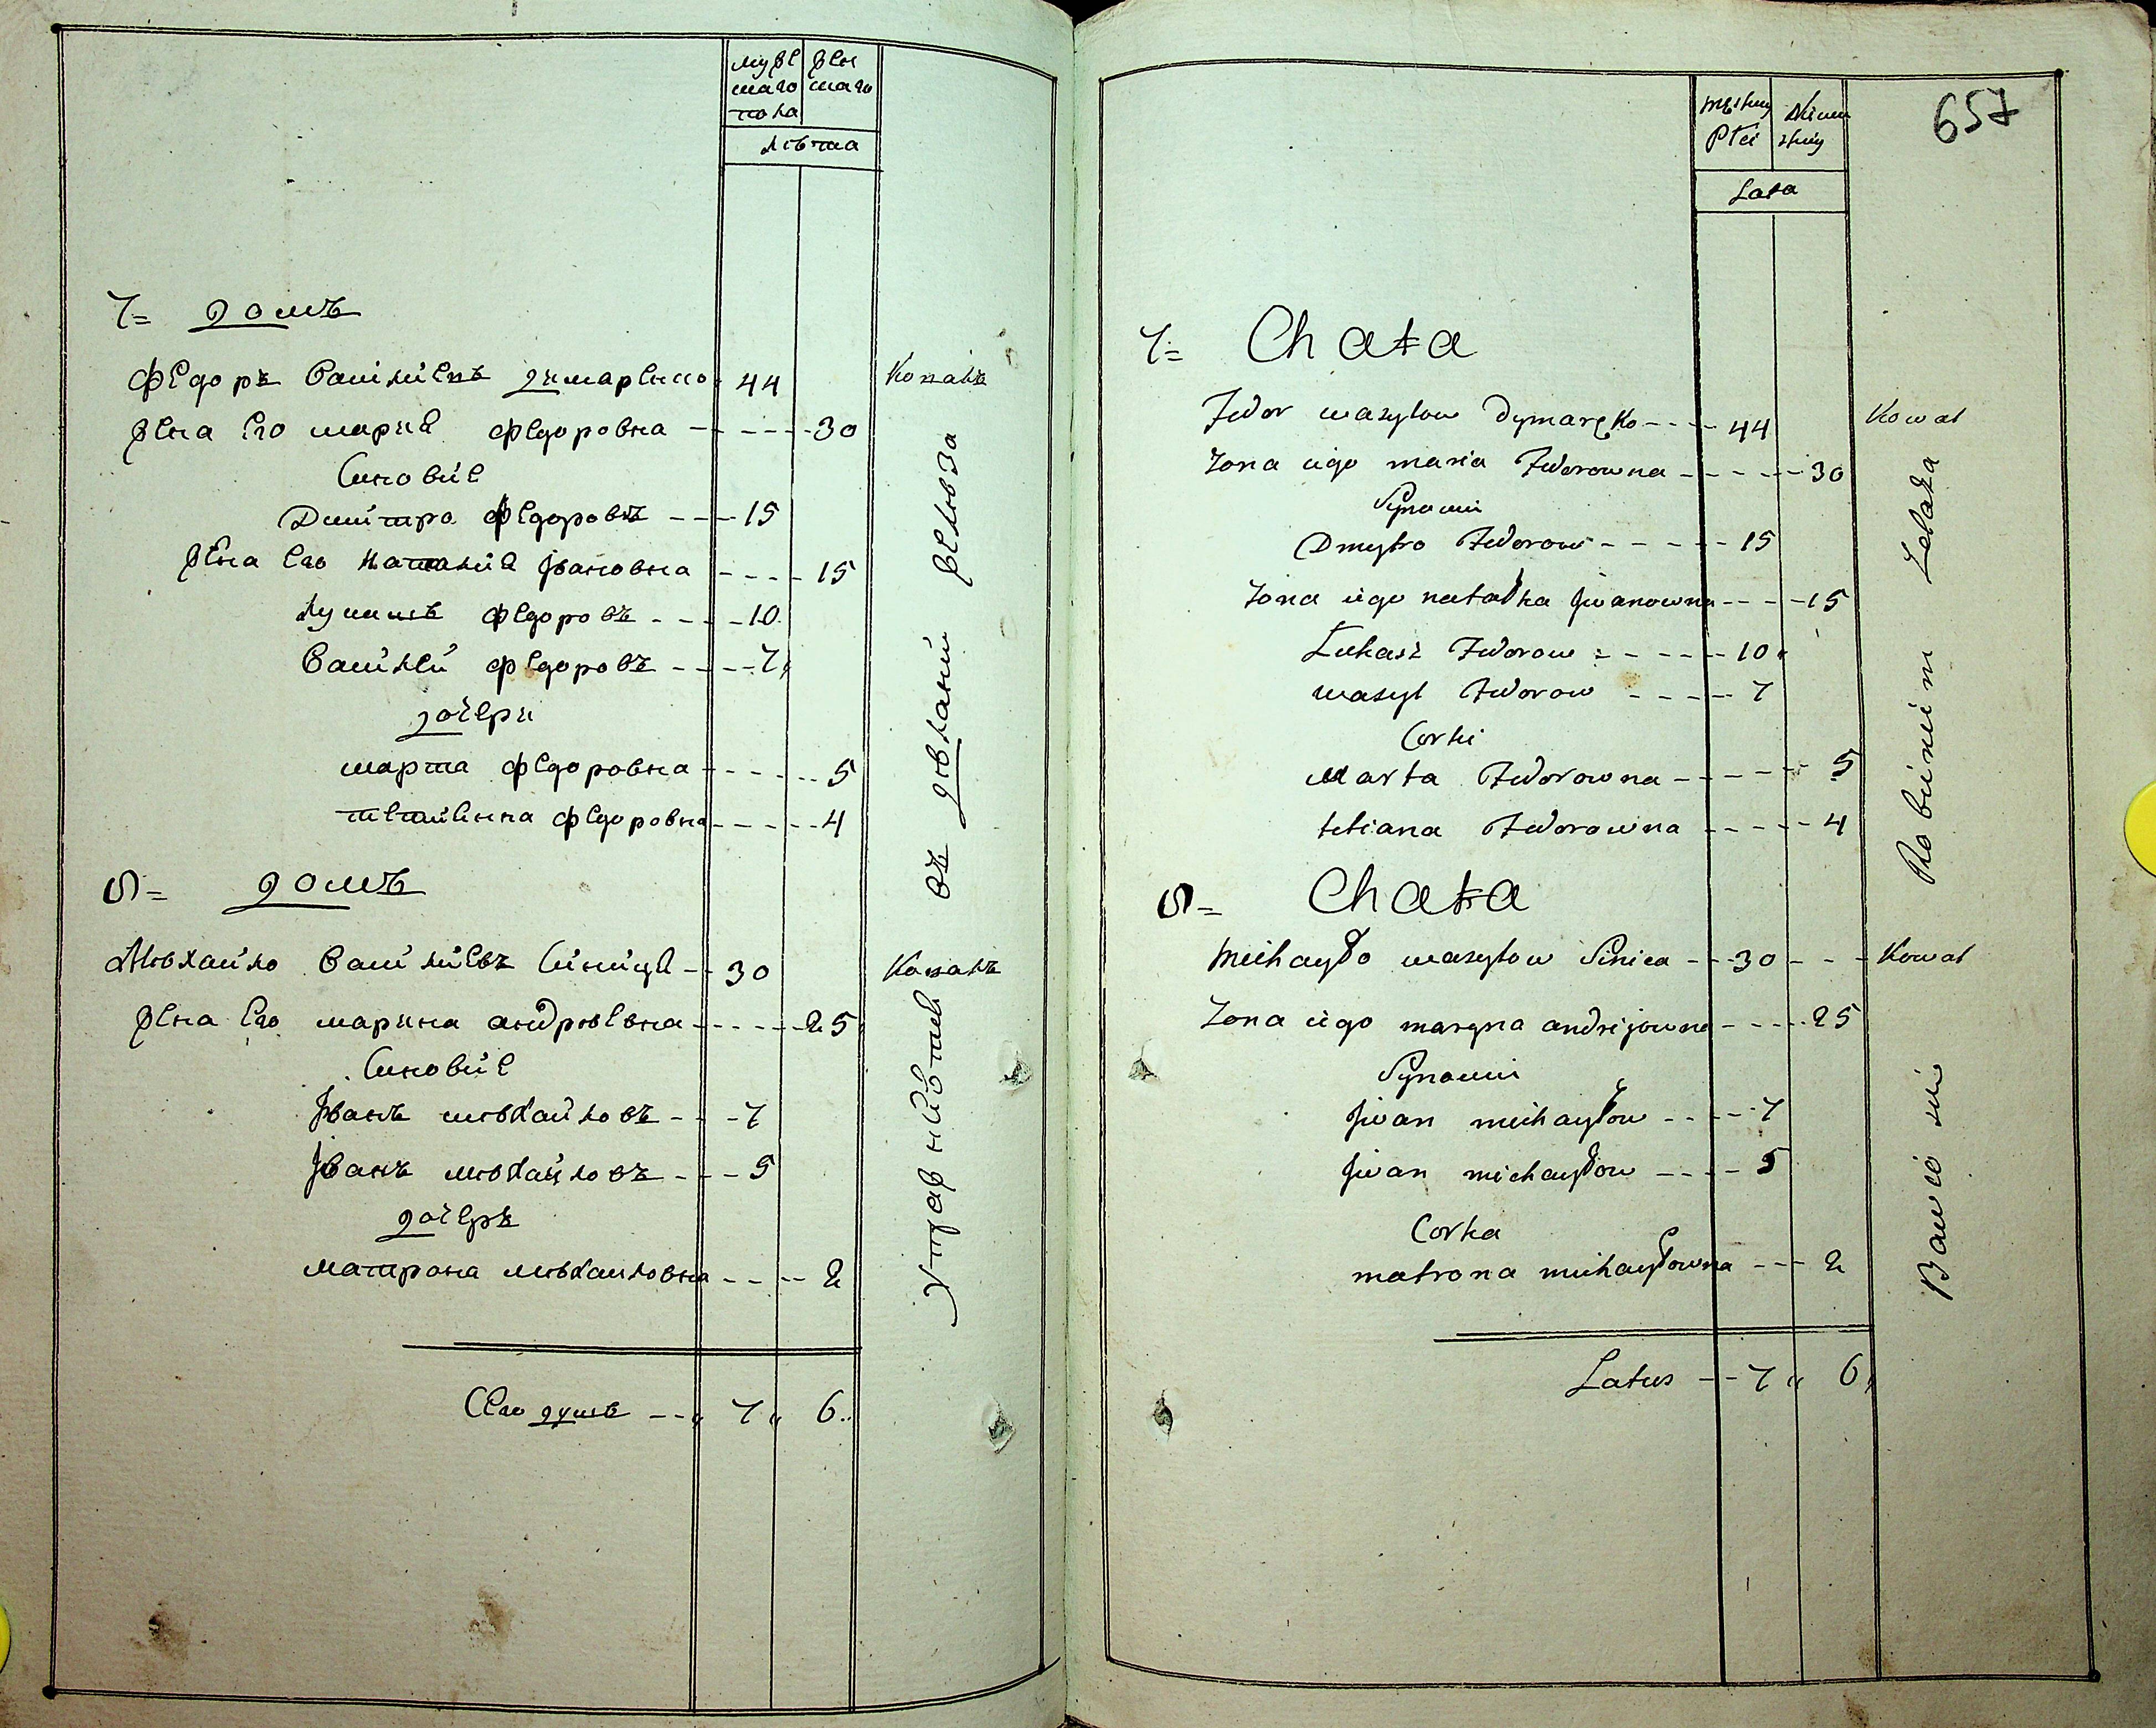 мужескаго пола
женскаго
лѣта
7= домъ
Федоръ Василиевъ Димаренко 44
Ковалъ
жена его Мария Федоровна - - - - - 30
Синовие
Димитро Федоровъ - - - 15
жена его Наталия Ивановна - - - - 15
Лукашъ Федоровъ - - - - 10
Василий Федоровъ - - - - 7
дочери
Марта Федоровна - - - - - 5
Татиянна Федоровна - - - - - 4
8= домъ
Михайло Василиевъ Синица - - 30
Ковалъ
жена его Марина Андриевна - - - - - 25
Синовие
Иванъ Михайловъ - - - 7
Иванъ Михайловъ - - - 5
дочеръ
Матрона Михайловна - - - - 2
Сего душъ - - 7 6
въ дѣланий желѣза
657
Męskiey Płci
Żeńskiey
Lata
7= Chata
Fedor wasylow Dymaręko - - - - 44
Kowal
Zona iego maria Fedorowna - - - - - 30
Synowie
Dmytro Fedorow - - - - - 15
Zona iego natałka Jwanowna - - - - 15
Łukasz Fedorow - - - - - 10
wasyl Fedorow - - - - 7
Corki
Marta Fedorowna - - - - - 5
tetiana Fedorowna - - - - 4
8= Chata
Michayło wasylow Sinica - - 30 - - -
Kowal
Zona iego maryna andrijowna - - - - 25
Synowie
Jwan michayłow - - - - 7
Jwan michayłow - - - - 5
Corka
matrona michayłowna - - - 2
Latus - - 7 6
Bawić się Robieniem Żelaza